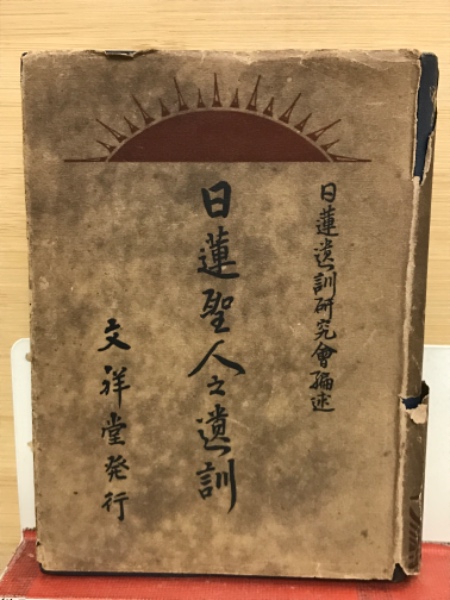 日蓮遺訓研究會編述
日蓮聖人之遺訓
文祥堂発行